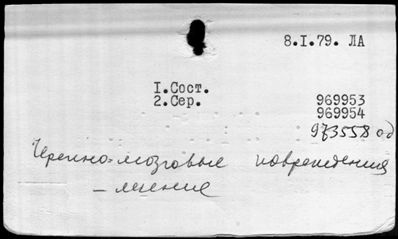 8.I.79. ЛА
I.Сост.
2.Сер. 969953
969954
973558 од
Черепно-мозговые повреждения
– лечение